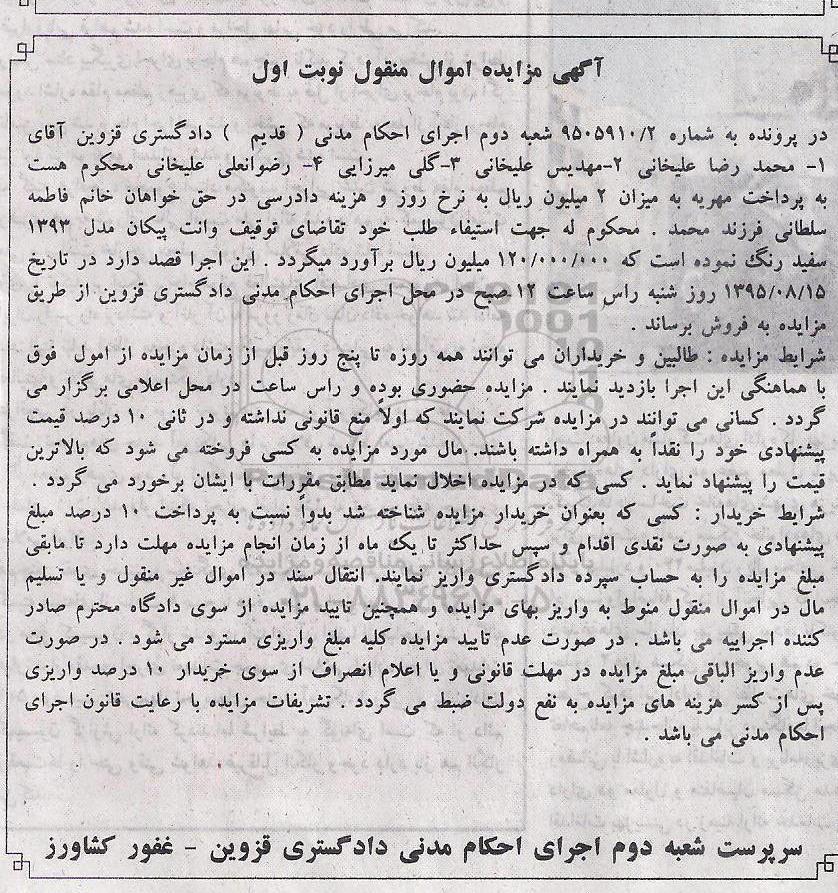 آگهی مزایده اموال منقول نوبت اول
در پرونده به شماره ۹۵۰۵۹۱۰/۲ شعبه دوم اجرای احکام مدنی ( قدیم ) دادگستری قزوین آقای
۱- محمد رضا علیخانی ۲-مهدیس علیخانی ۳-گلی میرزایی ۴- رضوانعلی علیخانی محکوم هست
به پرداخت مهریه به میزان ۲ میلیون ریال به نرخ روز و هزینه دادرسی در حق خواهان خانم فاطمه
سلطانی فرزند محمد . محکوم له جهت استیفاء طلب خود تقاضای توقیف وانت پیکان مدل ۱۳۹۳
سفید رنگ نموده است که ۱۲۰/۰۰۰/۰۰۰ میلیون ریال برآورد میگردد . این اجرا قصد دارد در تاریخ
۱۳۹۵/۰۸/۱۵ روز شنبه راس ساعت ۱۲ صبح در محل اجرای احکام مدنی دادگستری قزوین از طریق
مزایده به فروش برساند .
شرایط مزایده : طالبین و خریداران می توانند همه روزه تا پنج روز قبل از زمان مزایده از امول فوق
با هماهنگی این اجرا بازدید نمایند . مزایده حضوری بوده و راس ساعت در محل اعلامی برگزار می
گردد . کسانی می توانند در مزایده شرکت نمایند که اولاً منع قانونی نداشته و در ثانی ۱۰ درصد قیمت
پیشنهادی خود را نقداً به همراه داشته باشند. مال مورد مزایده به کسی فروخته می شود که بالاترین
قیمت را پیشنهاد نماید . کسی که در مزایده اخلال نماید مطابق مقررات با ایشان برخورد می گردد .
شرایط خریدار : کسی که بعنوان خریدار مزایده شناخته شد بدواً نسبت به پرداخت ۱۰ درصد مبلغ
پیشنهادی به صورت نقدی اقدام و سپس حداکثر تا یک ماه از زمان انجام مزایده مهلت دارد تا مابقی
مبلغ مزایده را به حساب سپرده دادگستری واریز نمایند. انتقال سند در اموال غیر منقول و یا تسلیم
مال در اموال منقول منوط به واریز بهای مزایده و همچنین تایید مزایده از سوی دادگاه محترم صادر
کننده اجراییه می باشد . در صورت عدم تایید مزایده کلیه مبلغ واریزی مسترد می شود . در صورت
عدم واریز الباقی مبلغ مزایده در مهلت قانونی و یا اعلام انصراف از سوی خریدار ۱۰ درصد واریزی
پس از کسر هزینه های مزایده به نفع دولت ضبط می گردد . تشریفات مزایده با رعایت قانون اجرای
احکام مدنی می باشد .
سرپرست شعبه دوم اجرای احکام مدنی دادگستری قزوین - غفور کشاورز